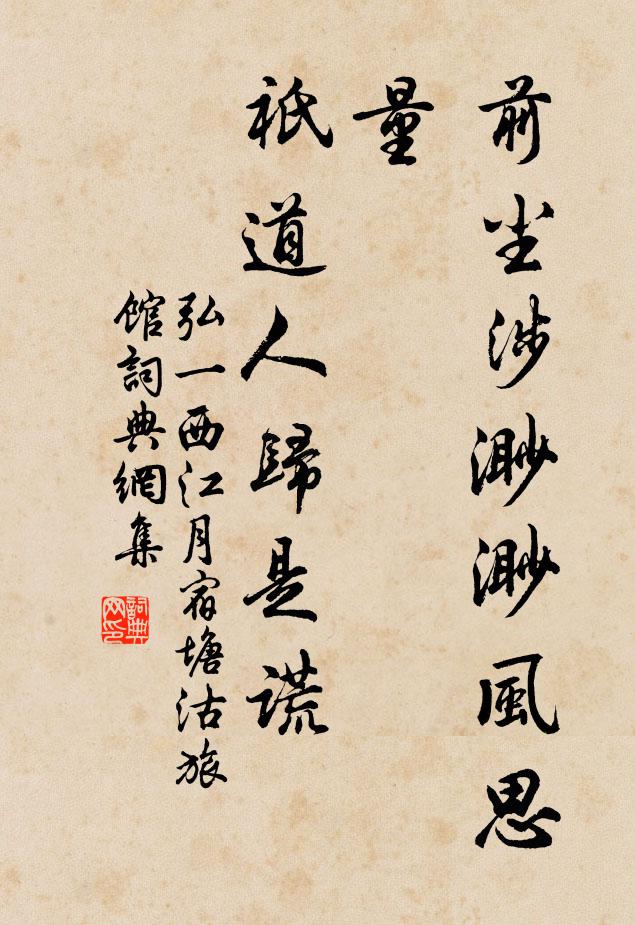 前尘涉渺渺風思
量
祇道人歸是謊
弘一西江月宿塘沽旅
館詞典網集
詞典网印